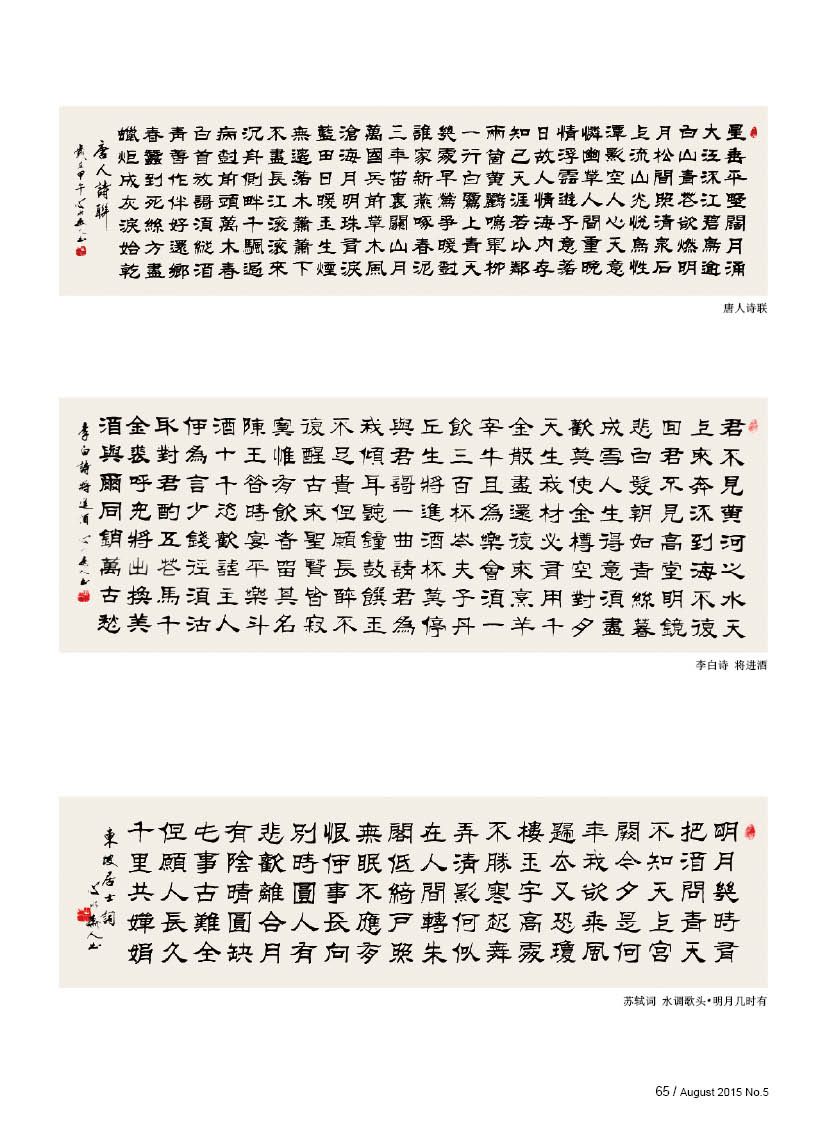 星垂平埜闊月涌
大江流江碧鳥逾
白山青花欲燃明
月松間照清泉石
上流山光悦鳥性
潭影空人心天意
憐幽草人間重晚
情浮雲遊子意落
日故人情海内存
知己天涯若比鄰
兩箇黄鸝鳴翠柳
一行白鷺上青天
幾處早鶯爭暖樹
誰家新燕啄春泥
三年笛裏關山月
萬國兵前草木風
滄海月明珠有淚
藍田日暖玉生煙
無邊落木蕭蕭下
不盡長江滾滾來
沉舟側畔千颿過
病樹前頭萬木春
白首放謌須縱酒
青春作伴好還鄉
春蠶到死絲方盡
蠟炬成灰淚始乾
唐人詩聯
歲在甲午
唐人诗联
君不見黄河之水天
上來奔流到海不復
回君不見高堂明鏡
悲白髮朝如青絲暮
成雪人生得意須盡
歡莫使金樽空對月
天生我材必有用千
金散盡還復來烹羊
宰牛且為樂會須一
飲三百杯岑夫子丹
丘生將進酒杯莫停
與君謌一曲請君為
我傾耳聽鐘鼓饌玉
不足貴但願長醉不
復醒古來聖賢皆寂
寞惟有飲者留其名
陳王昔時宴平樂斗
酒十千恣歡謔主人
伊為言少錢徑須沽
取對君酌五花馬千
金裘呼兒將出換美
酒與爾同銷萬古愁
李白詩將進酒
李白诗 将进酒
明月幾時有
把酒問青天
不知天上宮
闕今夕是何
年我欲乘風
歸去又恐瓊
樓玉宇高處
不勝寒起舞
弄清影何似
在人間轉朱
閣低綺戶照
無眠不應有
恨伊事長向
別時圓人有
悲歡離合月
有陰晴圓缺
七事古難全
但願人長久
千里共嬋娟
東坡居士詞
苏轼词 水调歌头•明月几时有
65 / August 2015 No.5